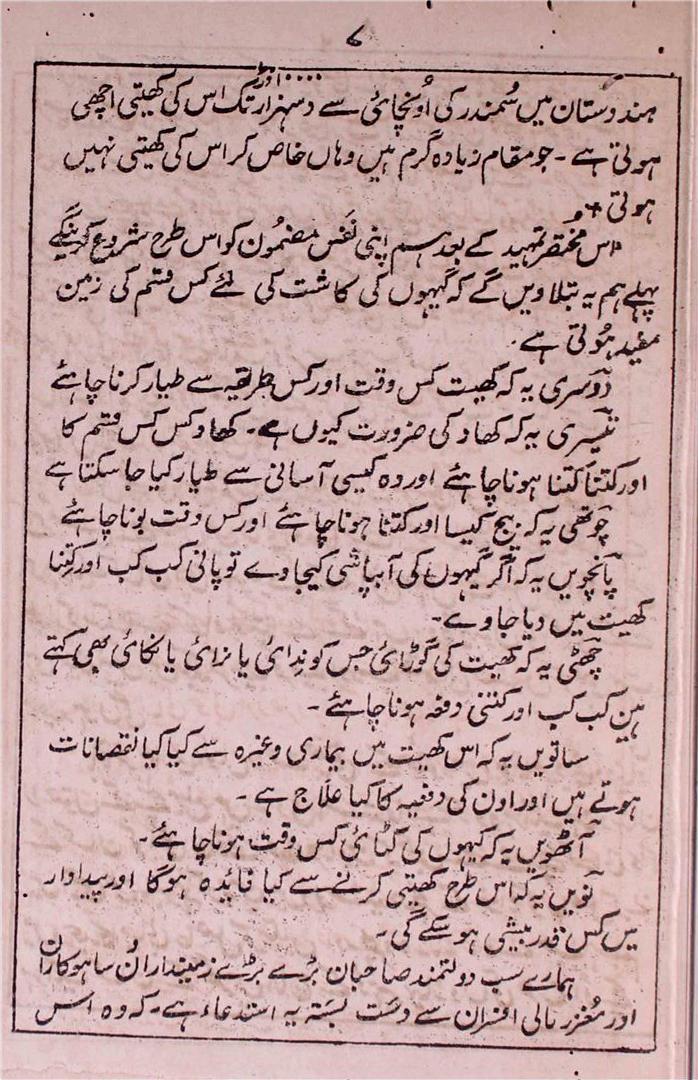 ۷
ہندوستان میں سُمندر کی اُونچائی سے دسہزار تک اس کی کھیتی اچھی
ہوتی ہے - جو مقام زیادہ گرم ہیں وہاں خاص کر اس کی کھیتی نہیں
ہوتی +
اس مختصر تمہید کے بعد ہم اپنی نفس مضمُون کو اس طرح شروع کرینگے
پہلے ہم یہ بتلا ویں گے کہ گیہوں کی کاشت کی لئے کس قسم کی زمین
مفید ہُوتی ہے -
دوسری یہ کہ کھیت کس وقت اور کس طریقہ سے طیار کرنا چاہئے
تیسری یہ کہ کھاد کی ضرورت کیوں ہے - کھاد کس کس قسم کا
اور کتنا کتنا ہونا چاہئے اور وہ کیسی آسانی سے طیار کیا جا سکتا ہے
چوتھی یہ کہ بیج کیسا اور کتنا ہونا چاہئے اور کس وقت بونا چاہئے
پانچویں یہ کہ اگر گیہوں کی آبپاشی کیجاوے تو پانی کب کب اور کتنا
کھیت میں دیا جاوے -
چھٹی یہ کہ کھیت کی گوڑائی جس کو ندائی یا نرائی یا نکائی بھی کہتے
ہین کب کب اور کتنی دفعہ ہونا چاہئے -
ساتویں یہ کہ اس کھیت میں بیماری وغیرہ سے کیا کیا نقصانات
ہوتے ہیں اور اون کی دفعیہ کا کیا علاج ہے -
آٹھویں یہ کہ گیہوں کی کٹائی کس وقت ہونا چاہئے -
نویں یہ کہ اس طرح کھیتی کرنے سے کیا فائدہ ہوگا اور پیداوار
میں کس قدر بیشی ہو سکے گی -
ہمارے سب دولتمند صاحبان بڑے بڑے زمینداران ساہوکاران
اور مُعزز مالی افسران سے دست بستہ یہ استدعاء ہے - کہ وہ اس